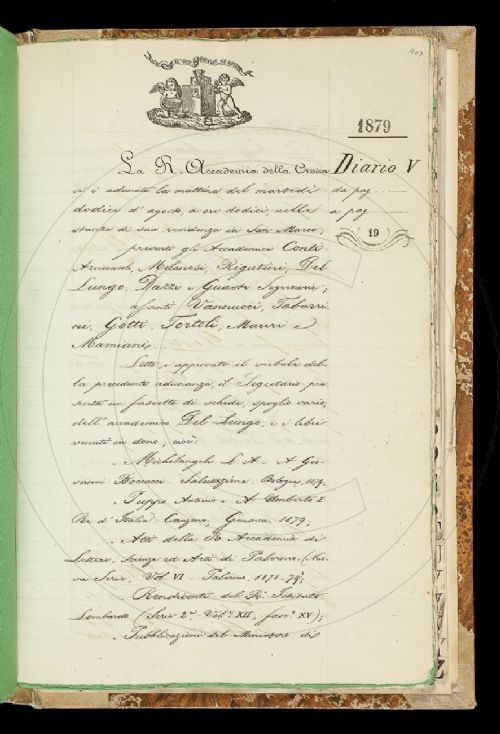 1879
Diario V
da pag.
a pag.
19
La R. Accademia della Crusca
si è adunata la mattina del martedì
dodici d'agosto a ore dodici, nelle
stanze di sua residenza in San Marco;
presenti gli Accademici Conti
Arciconsolo, Milanesi, Rigutini, Del
Lungo, Dazzi e Guasti Segretario;
assenti Vannucci, Tabarri-
ni, Gotti, Tortoli, Mauri e
Mamiani.
Letto, e approvato il verbale del-
la precedente adunanza, il Segretario pre-
senta un fascetto di schede, spoglio vario,
dell'accademico Del Lungo, e i libri
venuti in dono; cioè:
Michelangelo L. A. - A Gio-
vanni Boccacci. Salutazione. Bologna, 1879.
Puppo Antonio - A Umberto I
Re d'Italia Canzone, Genova, 1879;
Atti della R. Accademia di
Lettere, Scienze ed Arti di Palermo. (Nuo-
va Serie, Vol. VI - Palermo 1878-79;
Rendiconti del R. Istituto
Lombardo (Serie 2ª Vol. XII, fasc. XV);
Pubblicazioni del Ministero di